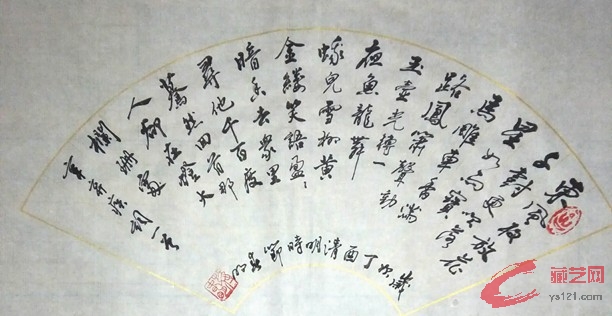 東風夜放花
千樹更吹落
星如雨寶
馬雕車香滿
路鳳簫聲動
玉壺光轉一
夜魚龍舞
蛾兒雪柳黃
金縷笑語盈盈
暗香去眾里
尋他千百度
驀然回首那
人卻在燈火
欄珊處
辛棄疾詞一首
歲次丁酉清明時節
藏艺网
ys121.com